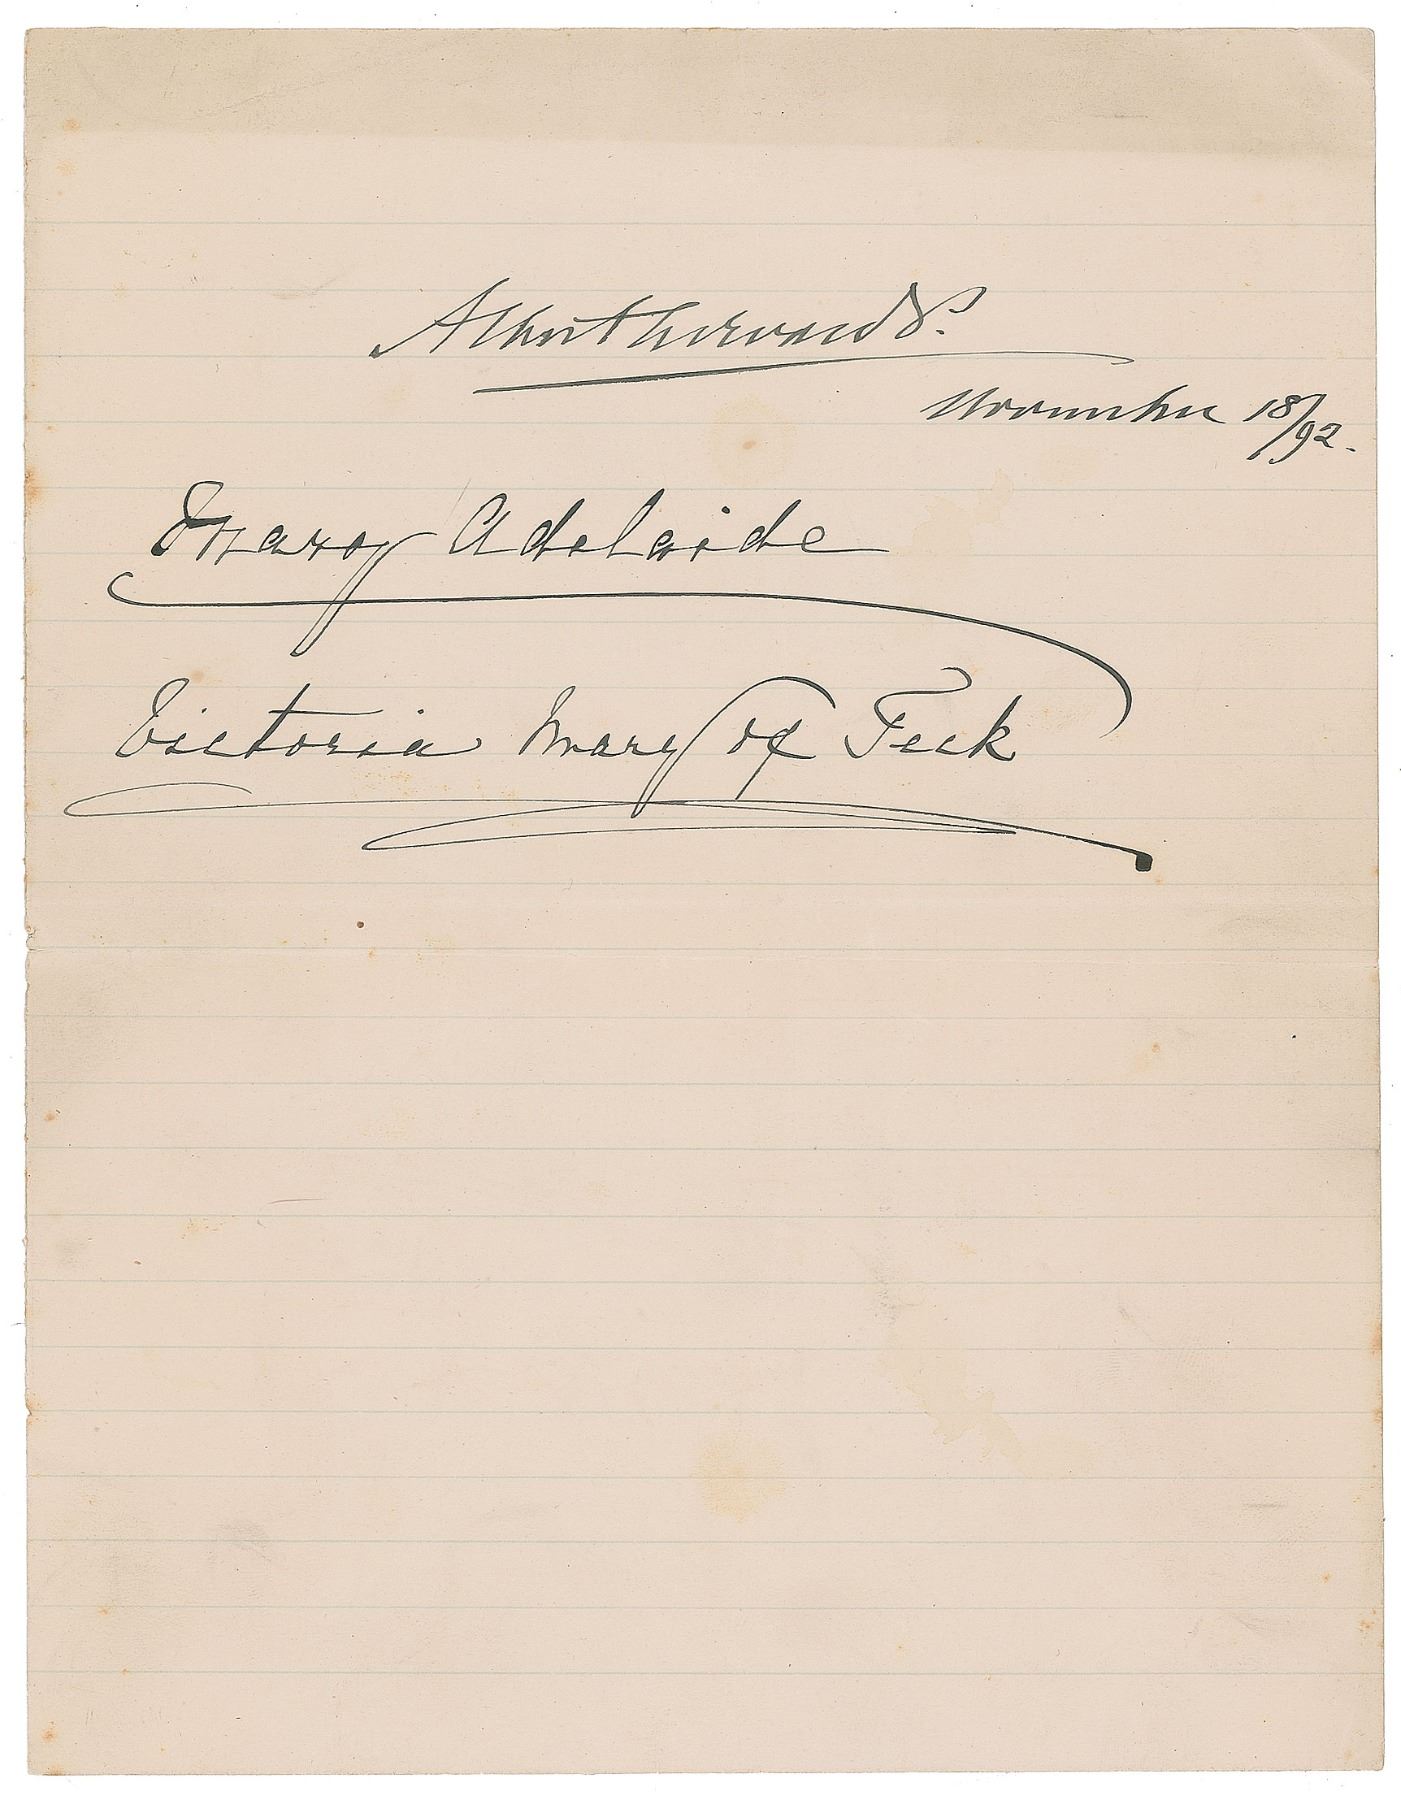 Albert Edward P.
November 18/92.
Mary Adelaide
Victoria Mary of Teck